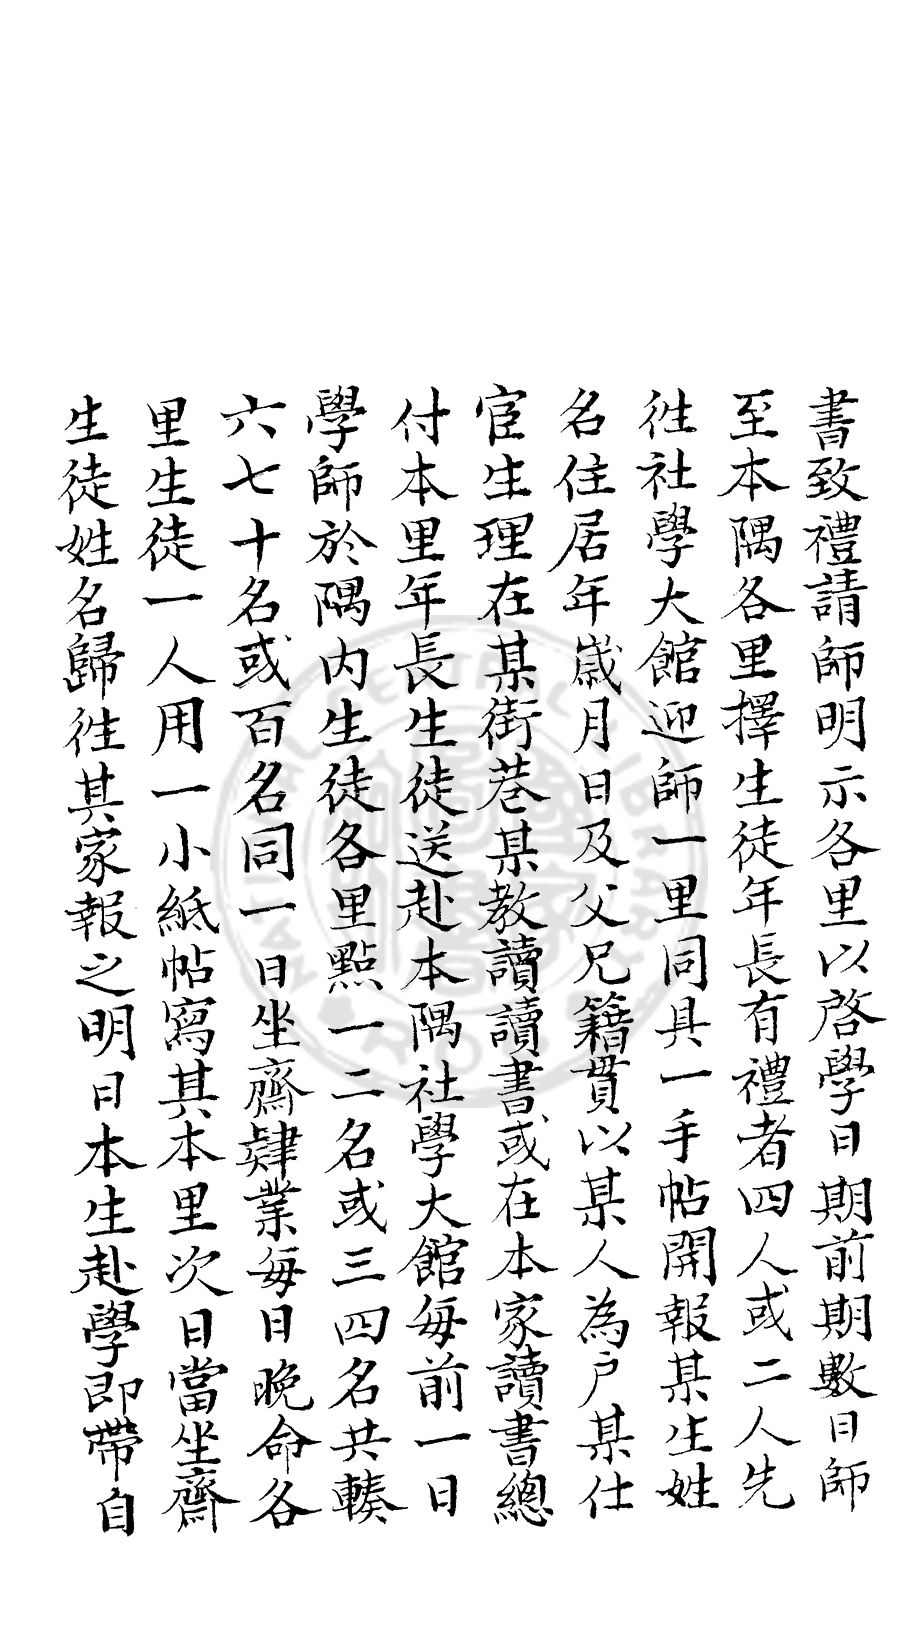 書致禮請師明示各里以啓學日期前期數日師
至本隅各里擇生徒年長有禮者四人或二人先
徃社學大館迎師一里同具一手帖開報某生姓
名住居年嵗月日及父兄籍貫以某人為户某仕
宦生理在某街巷某教讀讀書或在本家讀書總
付本里年長生徒送赴本隅社學大館每前一日
學師於隅内生徒各里點一二名或三四名共輳
六七十名或百名同一日坐齋肄業每日晚命各
里生徒一人用一小紙帖寫其本里次日當坐齋
生徒姓名歸徃其家報之明日本生赴學即帶自